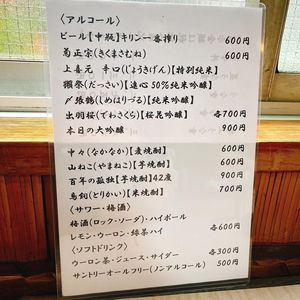 〈アルコール〉
ビール【中瓶】キリン一番搾り 600円
菊正宗(きくまさむね) 600円
上喜元 辛口(じょうきげん)【特別純米】
獺祭(だっさい)【遠心50%純米吟醸】
〆張鶴(しめはりづる)【純米吟醸】
出羽桜(でわざくら)【桜花吟醸】 各700円
本日の大吟醸 900円
中々(なかなか)【麦焼酎】 600円
山ねこ(やまねこ)【芋焼酎】 600円
百年の孤独【芋焼酎】42度 900円
鳥飼(とりかい)【米焼酎】 700円
〈サワー・梅酒〉
梅酒(ロック・ソーダ)・ハイボール
レモン・ウーロン・緑茶ハイ 各600円
〈ソフトドリンク〉
ウーロン茶・ジュース・サイダー 各300円
サントリーオールフリー(ノンアルコール) 500円